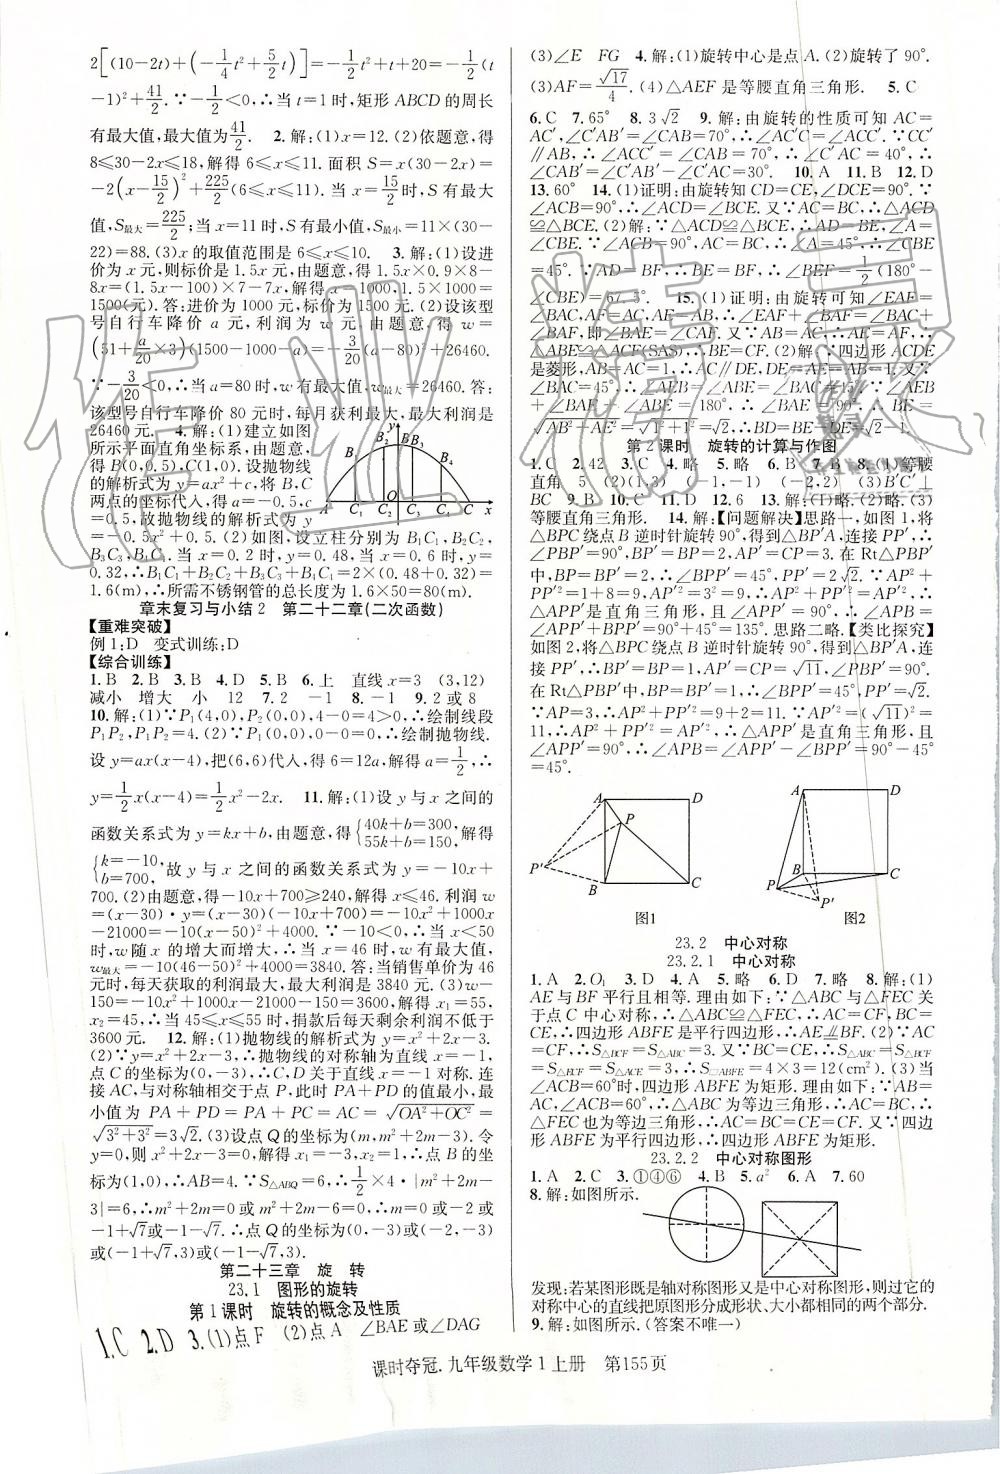 2[(10-2t)+(-1/4t²+5/2t)]=-1/2t²+t+20=-1/2(t
-1)²+41/2.∵-1/2<0,∴当t=1时,矩形ABCD的周长
有最大值,最大值为41/2. 2.解:(1)x=12.(2)依题意,得
8≤30-2x≤18,解得6≤x≤11.面积S=x(30-2x)=
-2(x-15/2)²+225/2(6≤x≤11).当x=15/2时,S有最大
值,S最大=225/2;当x=11时,S有最小值,S最小=11×(30-
22)=88.(3)x的取值范围是6≤x≤10. 3.解:(1)设进
价为x元,则标价是1.5x元,由题意,得1.5x×0.9×8-
8x=(1.5x-100)×7-7x,解得x=1000,1.5×1000=
1500(元).答:进价为1000元,标价为1500元.(2)设该型
号自行车降价a元,利润为w元.由题意,得w=
(51+a/20×3)(1500-1000-a)=-3/20(a-80)²+26460.
∵-3/20<0,∴当a=80时,w有最大值,w最大=26460.答:
该型号自行车降价80元时,每月获利最大,最大利润是
26460元. 4.解:(1)建立如图
所示平面直角坐标系,由题意,
得B(0,0.5),C(1,0).设抛物线
的解析式为y=ax²+c,将B,C
两点的坐标代入,得a=-0.5,c
=0.5,故抛物线的解析式为y=
-0.5x²+0.5.(2)如图,设立柱分别为B₁C₁,B₂C₂,
B₃C₃,B₄C₄.当x=0.2时,y=0.48,当x=0.6时,y=
0.32,∴B₁C₁+B₂C₂+B₃C₃+B₄C₄=2×(0.48+0.32)=
1.6(m),∴所需不锈钢管的总长度为1.6×50=80(m).
章末复习与小结2 第二十二章(二次函数)
【重难突破】
例1:D 变式训练:D
【综合训练】
1.B 2.B 3.B 4.D 5.B 6.上 直线x=3 (3,12)
减小 增大 小 12 7.2 -1 8.-1 9.2或8
10.解:(1)∵P₁(4,0),P₂(0,0),4-0=4>0,∴绘制线段
P₁P₂,P₁P₂=4.(2)∵P₁(0,0),P₂(0,0),0-0=0,∴绘制抛物线.
设y=ax(x-4),把(6,6)代入,得6=12a,解得a=1/2,∴
y=1/2x(x-4)=1/2x²-2x. 11.解:(1)设y与x之间的
函数关系式为y=kx+b,由题意,得{40k+b=300,55k+b=150,解得
{k=-10,b=700,故y与x之间的函数关系式为y=-10x+
700.(2)由题意,得-10x+700≥240,解得x≤46.利润w
=(x-30)·y=(x-30)(-10x+700)=-10x²+1000x
-21000=-10(x-50)²+4000.∵-10<0,∴x<50
时,w随x的增大而增大,∴当x=46时,w有最大值,
w最大=-10(46-50)²+4000=3840.答:当销售单价为46
元时,每天获取的利润最大,最大利润是3840元.(3)w-
150=-10x²+1000x-21000-150=3600,解得x₁=55,
x₂=45,∴当45≤x≤55时,捐款后每天剩余利润不低于
3600元. 12.解:(1)抛物线的解析式为y=x²+2x-3.
(2)∵y=x²+2x-3,∴抛物线的对称轴为直线x=-1,
点C的坐标为(0,-3),∴C,D关于直线x=-1对称.连
接AC,与对称轴相交于点P,此时PA+PD的值最小,最
小值为PA+PD=PA+PC=AC=√OA²+OC²=
√3²+3²=3√2.(3)设点Q的坐标为(m,m²+2m-3).令
y=0,得x²+2x-3=0,∴x=-3或1,∴点B的坐标为
(1,0),∴AB=4.∵S△ABQ=6,∴1/2×4·|m²+2m-
3|=6,∴m²+2m=0或m²+2m-6=0,∴m=0或-2或
-1+√7或-1-√7,∴点Q的坐标为(0,-3)或(-2,-3)
或(-1+√7,3)或(-1-√7,3).
第二十三章 旋 转
23.1 图形的旋转
第1课时 旋转的概念及性质
1.C 2.D 3.(1)点F (2)点A ∠BAE或∠DAG
(3)∠E FG 4.解:(1)旋转中心是点A.(2)旋转了90°.
(3)AF=√17/4.(4)△AEF是等腰直角三角形. 5.C
6.C 7.65° 8.3√2 9.解:由旋转的性质可知AC=
AC′,∠C′AB′=∠CAB=70°,∴∠AC′C=∠ACC′.∵CC′
∥AB,∴∠ACC′=∠CAB=70°,∴∠CAC′=40°,∴
∠CAB′=∠C′AB′-∠CAC′=30°. 10.A 11.B 12.D
13.60° 14.(1)证明:由旋转知CD=CE,∠DCE=90°.∵
∠ACB=90°,∴∠ACD=∠BCE.又∵AC=BC,∴△ACD
≌△BCE.(2)解:∵△ACD≌△BCE,∴AD=BE,∠A=
∠CBE.∵∠ACB=90°,AC=BC,∴∠A=45°,∴∠CBE
=45°.∵AD=BF,∴BE=BF,∴∠BEF=1/2(180°-
∠CBE)=67.5°. 15.(1)证明:由旋转可知∠EAF=
∠BAC,AF=AC,AE=AB,∴∠EAF+∠BAF=∠BAC+
∠BAF,即∠BAE=∠CAF.又∵AB=AC,∴AE=AF,∴
△ABE≌△ACF(SAS),∴BE=CF.(2)解:∵四边形ACDE
是菱形,AB=AC=1,∴AC∥DE,DE=AE=AB=1.又∵
∠BAC=45°,∴∠AEB=∠ABE=∠BAC=45°.∵∠AEB
+∠BAE+∠ABE=180°,∴∠BAE=90°,∴BE=
√AB²+AE²=√1²+1²=√2,∴BD=BE-DE=√2-1.
第2课时 旋转的计算与作图
1.C 2.42 3.C 4.略 5.略 6.B 7.B 8.(1)等腰
直角 5 (2)(4,4) (-1,-1) (-4,-2) (3)B′C′⊥
BC 9.B 10.C 11.D 12.6 13.解:(1)略.(2)略.(3)
等腰直角三角形. 14.解:【问题解决】思路一,如图1,将
△BPC绕点B逆时针旋转90°,得到△BP′A,连接PP′,∴
∠PBP′=90°,BP′=BP=2,AP′=CP=3.在Rt△PBP′
中,BP=BP′=2,∴∠BPP′=45°,PP′=2√2.∵AP²+
PP′²=1+8=9,AP′²=3²=9,∴AP²+PP′²=AP′²,∴
△APP′是直角三角形,且∠APP′=90°,∴∠APB=
∠APP′+BPP′=90°+45°=135°.思路二略.【类比探究】
如图2,将△BPC绕点B逆时针旋转90°,得到△BP′A,连
接PP′,∴∠PBP′=90°,BP′=BP=1,AP′=CP=√11.
在Rt△PBP′中,BP=BP′=1,∴∠BPP′=45°,PP′=√2.
∵AP=3,∴AP²+PP′²=9+2=11.∵AP′²=(√11)²=
11,∴AP²+PP′²=AP′²,∴△APP′是直角三角形,且
∠APP′=90°,∴∠APB=∠APP′-∠BPP′=90°-45°
=45°.
图1 图2
23.2 中心对称
23.2.1 中心对称
1.A 2.O₁ 3.D 4.A 5.略 6.D 7.略 8.解:(1)
AE与BF平行且相等.理由如下:∵△ABC与△FEC关
于点C中心对称,∴△ABC≌△FEC,∴AC=CF,BC=
CE,∴四边形ABFE是平行四边形,∴AE⊥⊥BF.(2)∵AC
=CF,∴S△BCF=S△ABC=3.又∵BC=CE,∴S△ABC=
S△ACE=S△BCF=S△ECF=3,∴S□ABFE=4×3=12(cm²).(3)当
∠ACB=60°时,四边形ABFE为矩形.理由如下:∵AB=
AC,∠ACB=60°,∴△ABC为等边三角形,∴
△FEC也为等边三角形,∴AC=BC=CE=CF.又∵四边
形ABFE为平行四边形,∴四边形ABFE为矩形.
23.2.2 中心对称图形
1.A 2.C 3.①④⑥ 4.B 5.a² 6.A 7.60
8.解:如图所示.
发现:若某图形既是轴对称图形又是中心对称图形,则过它的
对称中心的直线把原图形分成形状、大小都相同的两个部分.
9.解:如图所示.(答案不唯一)
课时夺冠.九年级数学1上册 第155页